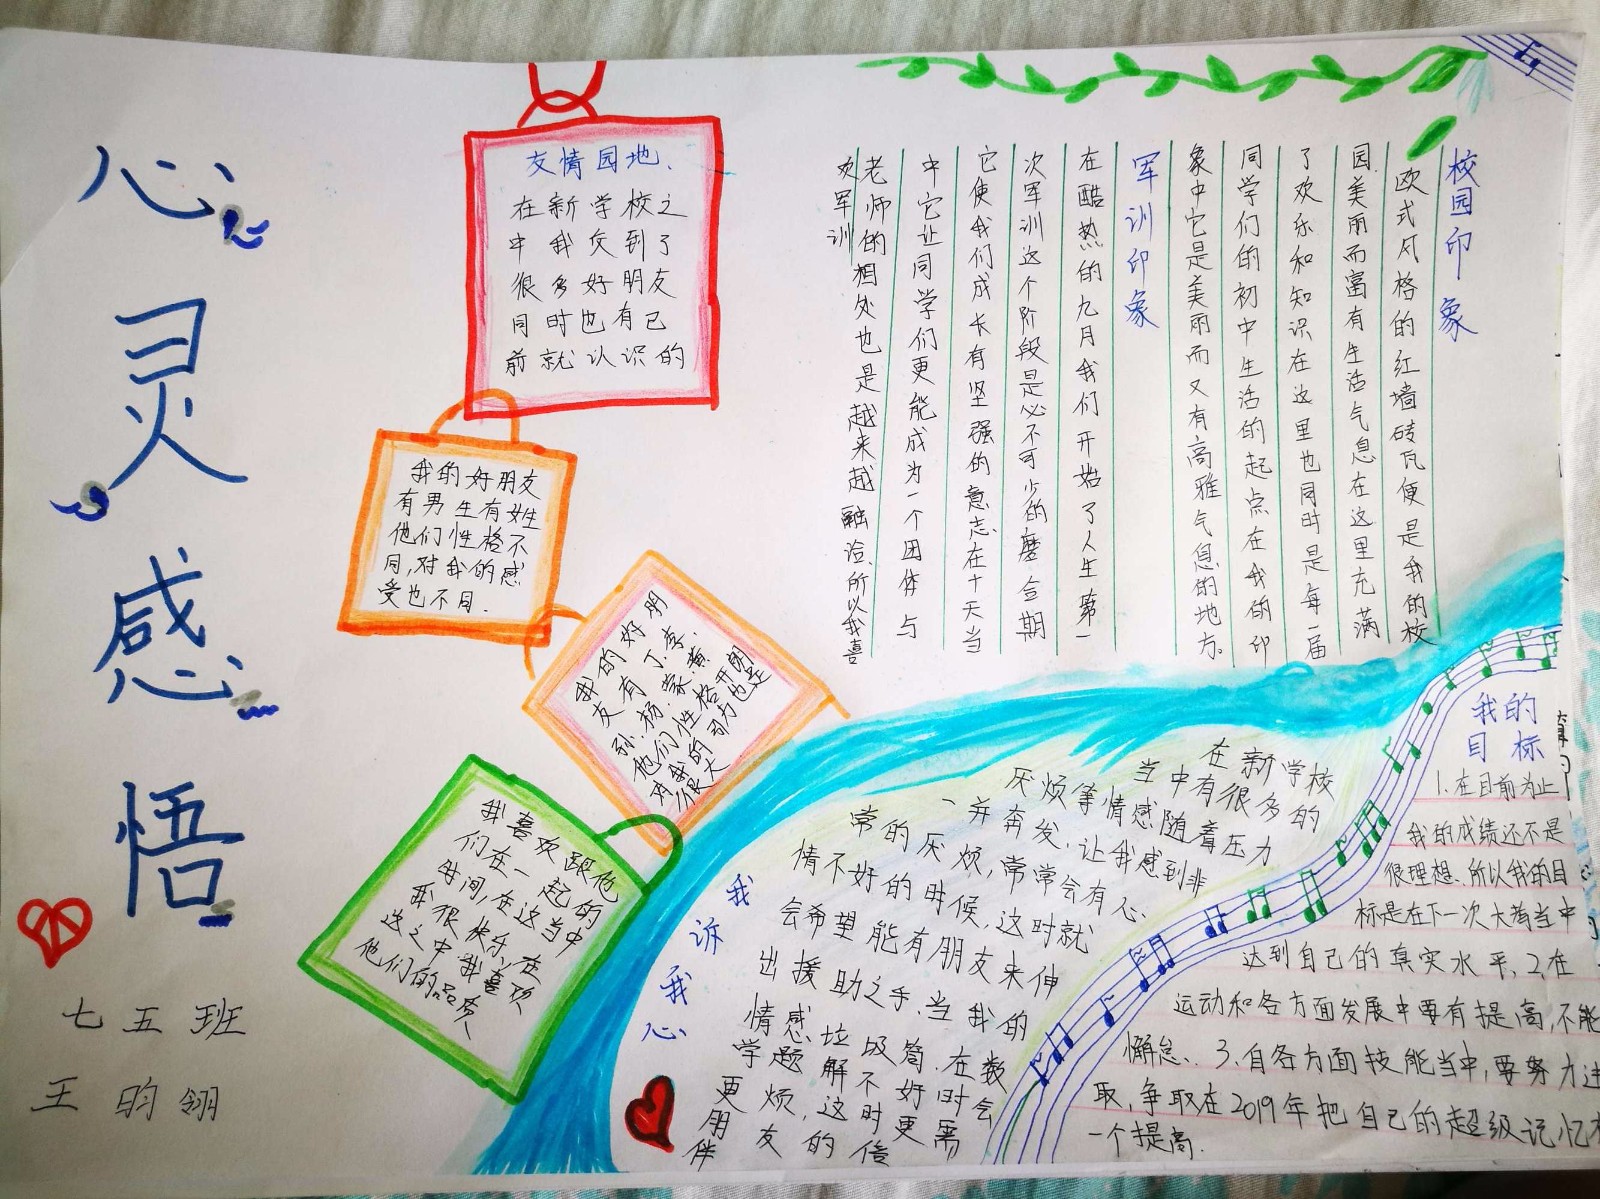 心灵感悟
七五班
王昀翎
友情园地、
在新学校之
中我交到了
很多好朋友
同时也有已
前就认识的
我的好朋友
有男生有姓
他们性格不
同,对我的感
受也不同.
我的好朋
友有丁.李.
孙.杨.蒙.黄.
他们性格开朗
对我的引力也是
很大
我喜欢跟他
们在一起的
时间,在这当中
我很快乐,在
这之中我喜欢
他们的品质、
校园印象
欧式风格的红墙砖瓦便是我的校
园.美丽而富有生活气息在这里充满
了欢乐和知识在这里也同时是每一届
同学们的初中生活的起点在我的印
象中它是美丽而又有高雅气息的地方。
军训印象
在酷热的九月我们开始了人生第一
次军训这个阶段是必不可少的磨合期
它使我们成长有坚强的意志在十天当
中它让同学们更能成为一个团体与
老师的相处也是越来越融洽.所以我喜
欢军训
我诉我心
在新学校
当中有很多的
厌烦等情感随着压力
一并奔发,让我感到非
常的厌烦,常常会有心
情不好的时候,这时就
会希望能有朋友来伸
出援助之手.当我的
情感垃圾筒.在数
学题解不好时会
更烦,这时更需
朋友的倍
伴
我的
目标
1.在目前为止
我的成绩还不是
很理想、所以我的目
标是在下一次大考当中
达到自己的真实水平,2.在
运动和各方面发展中要有提高,不能
懈怠、3.自各方面技能当中,要努力进
取,争取在2019年把自己的超级记忆有
一个提高.